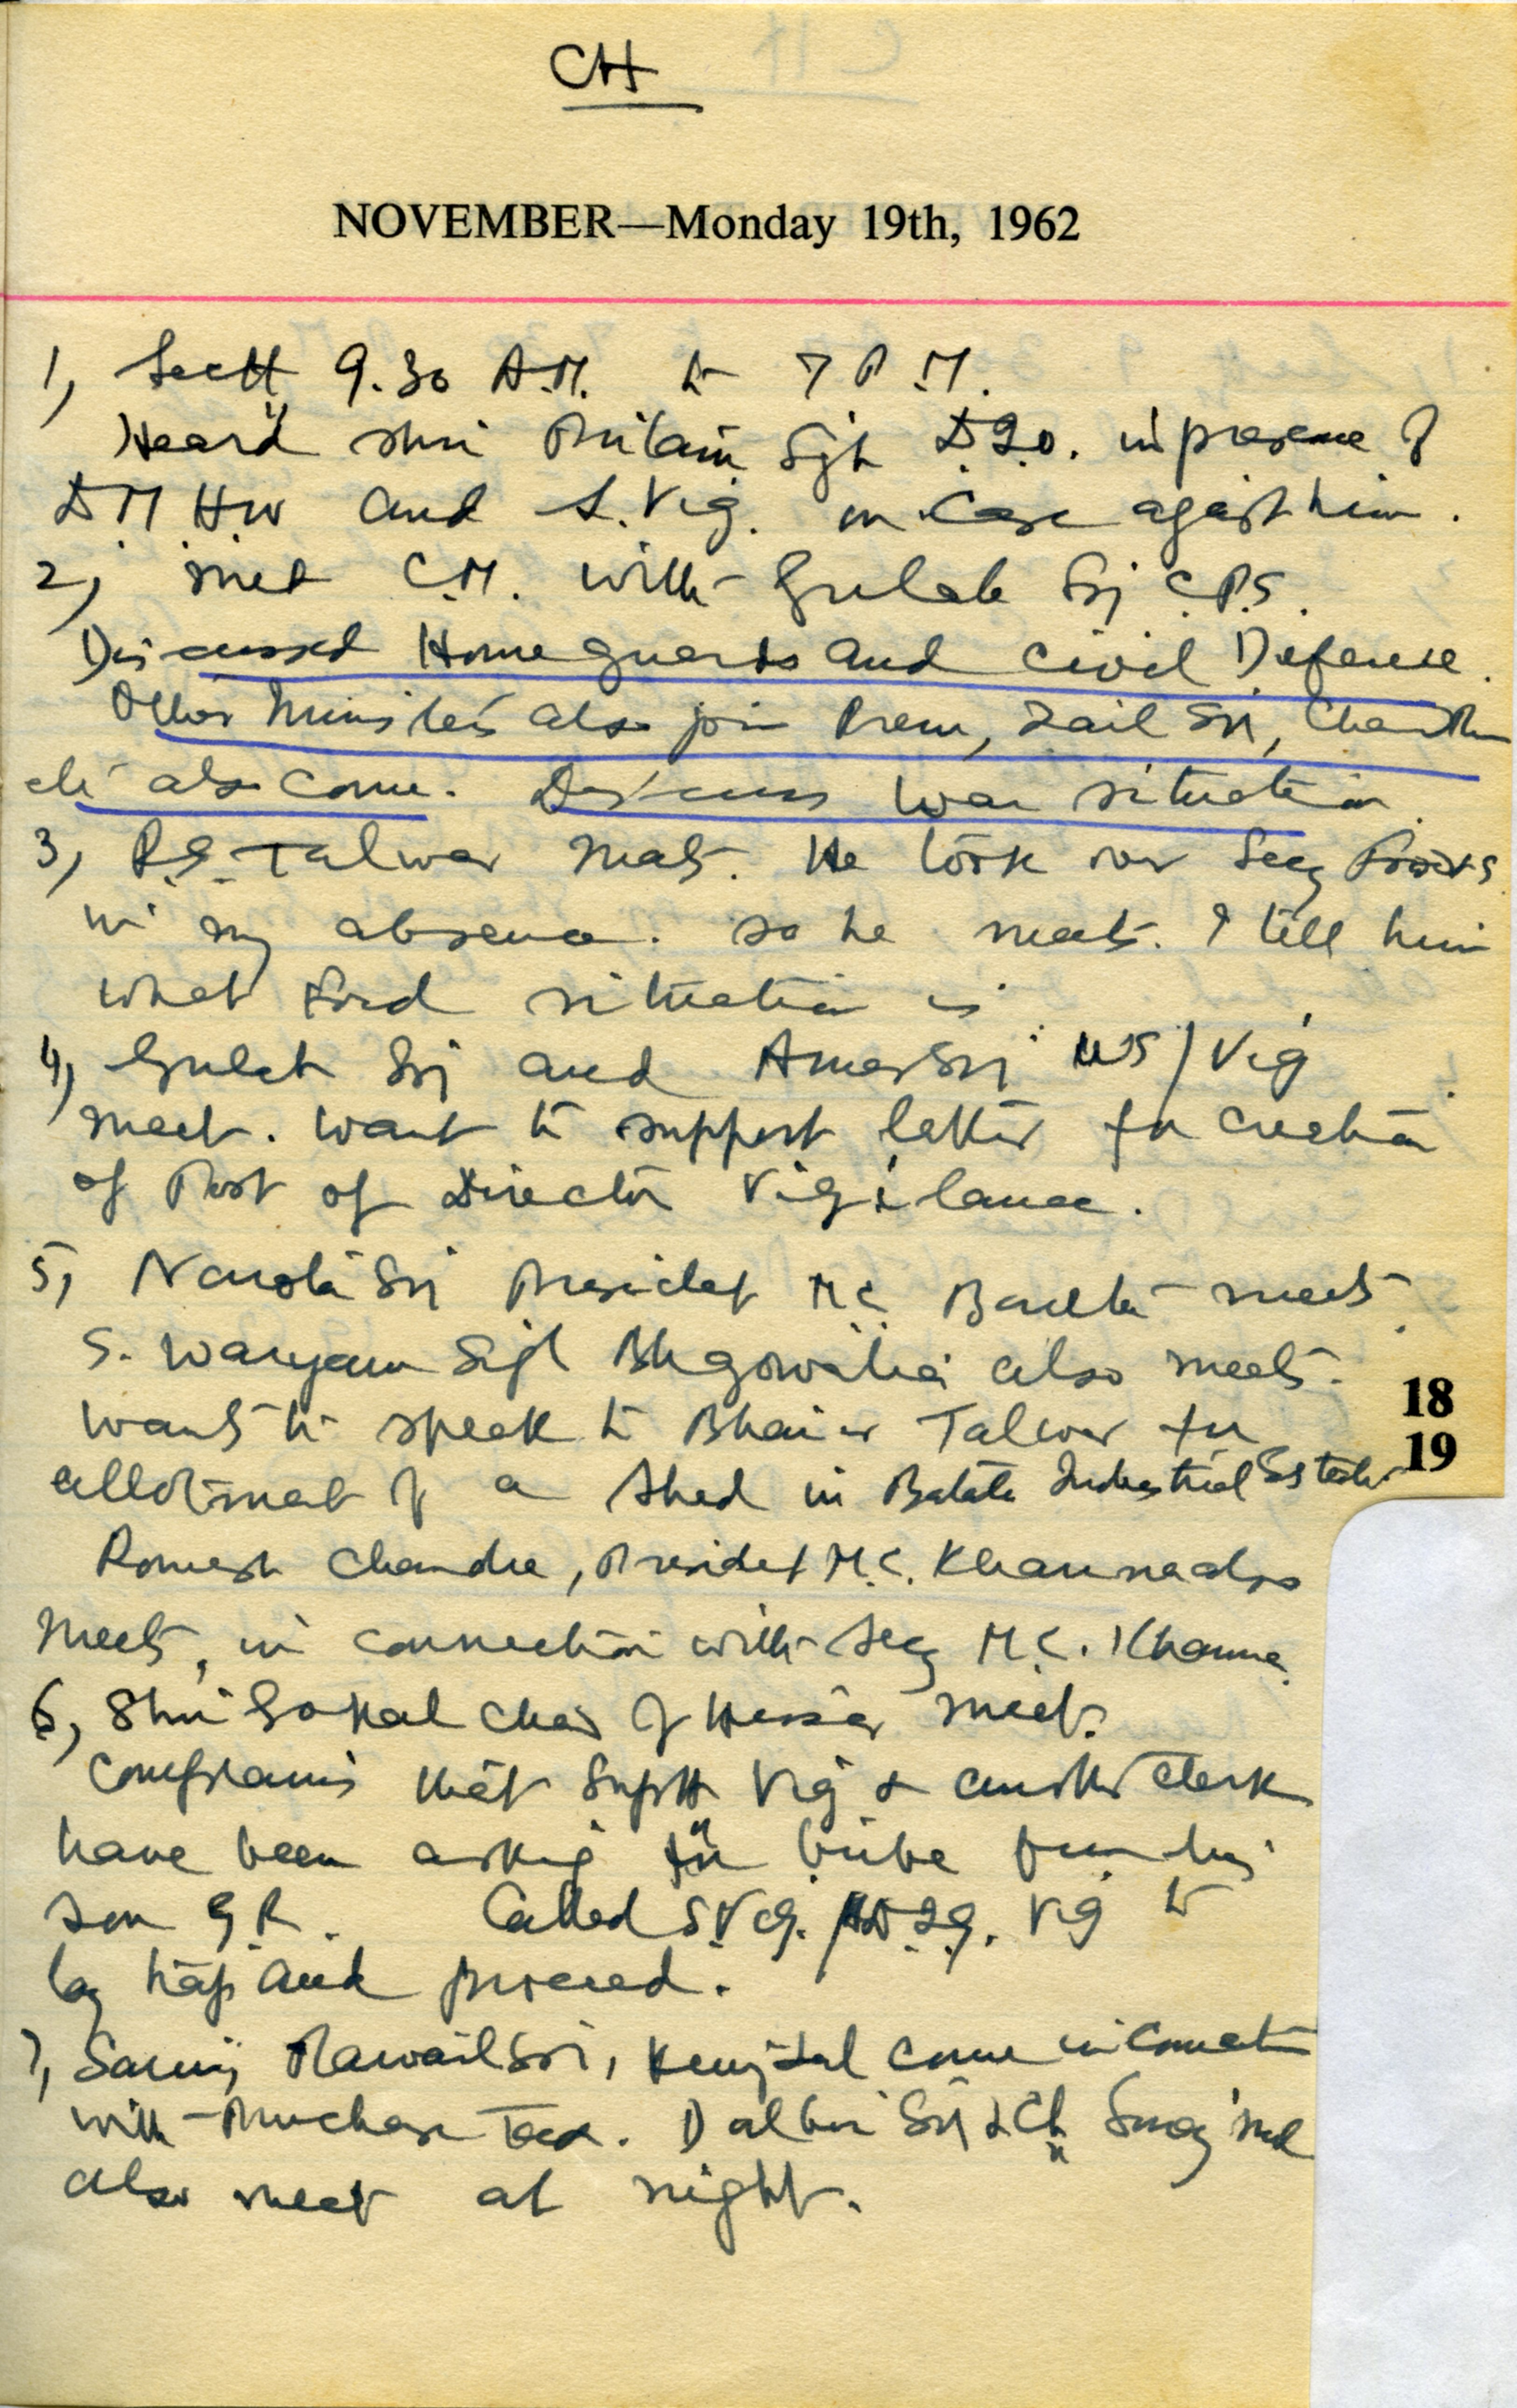 CH
NOVEMBER—Monday 19th, 1962
1, Sectt 9.30 A.M. to 7 P.M.
Heard Shri Pritam Sgh D.I.O. in presence of
D.M.H.W and S. Vig. in case agast him.
2, met C.M. with Gulab Sij C.P.S.
Discussed Home guards and Civil Defense.
Other Ministers also join Prem, Zail Sij,
also come. Discuss war situation.
3, R.S. Talwar meets. He took over Secy
in my absence. So he meets. I tell him
what food situation is
4, Gulab Sij and Amar Sij US/Vig
meet. want to support letter for creation
of Post of Director Vigilance.
5, Sij Presidet M.C. meets.
S. Waryam Sigh Bhgowalia also meets.
wants to speak to Talwar for
allotment of a shed in Batala Industrial Estate
18
19
Romesh Chandra, Presidet M.C. Khanna also
meets, in connection with Secy M.C. Khanna.
6, Shri Gokal Chad of Hissar meets.
Complains that Suptt Vig & another clerk
have been askig for bribe from his
son G.R. Called S.Vig. D.I.G. Vig to
lay trap and proceed.
7, Sarvij Rawail Sij, Lal come in connection
with Purchase Tax. Dalbir Sij & Ch.
also meet at night.